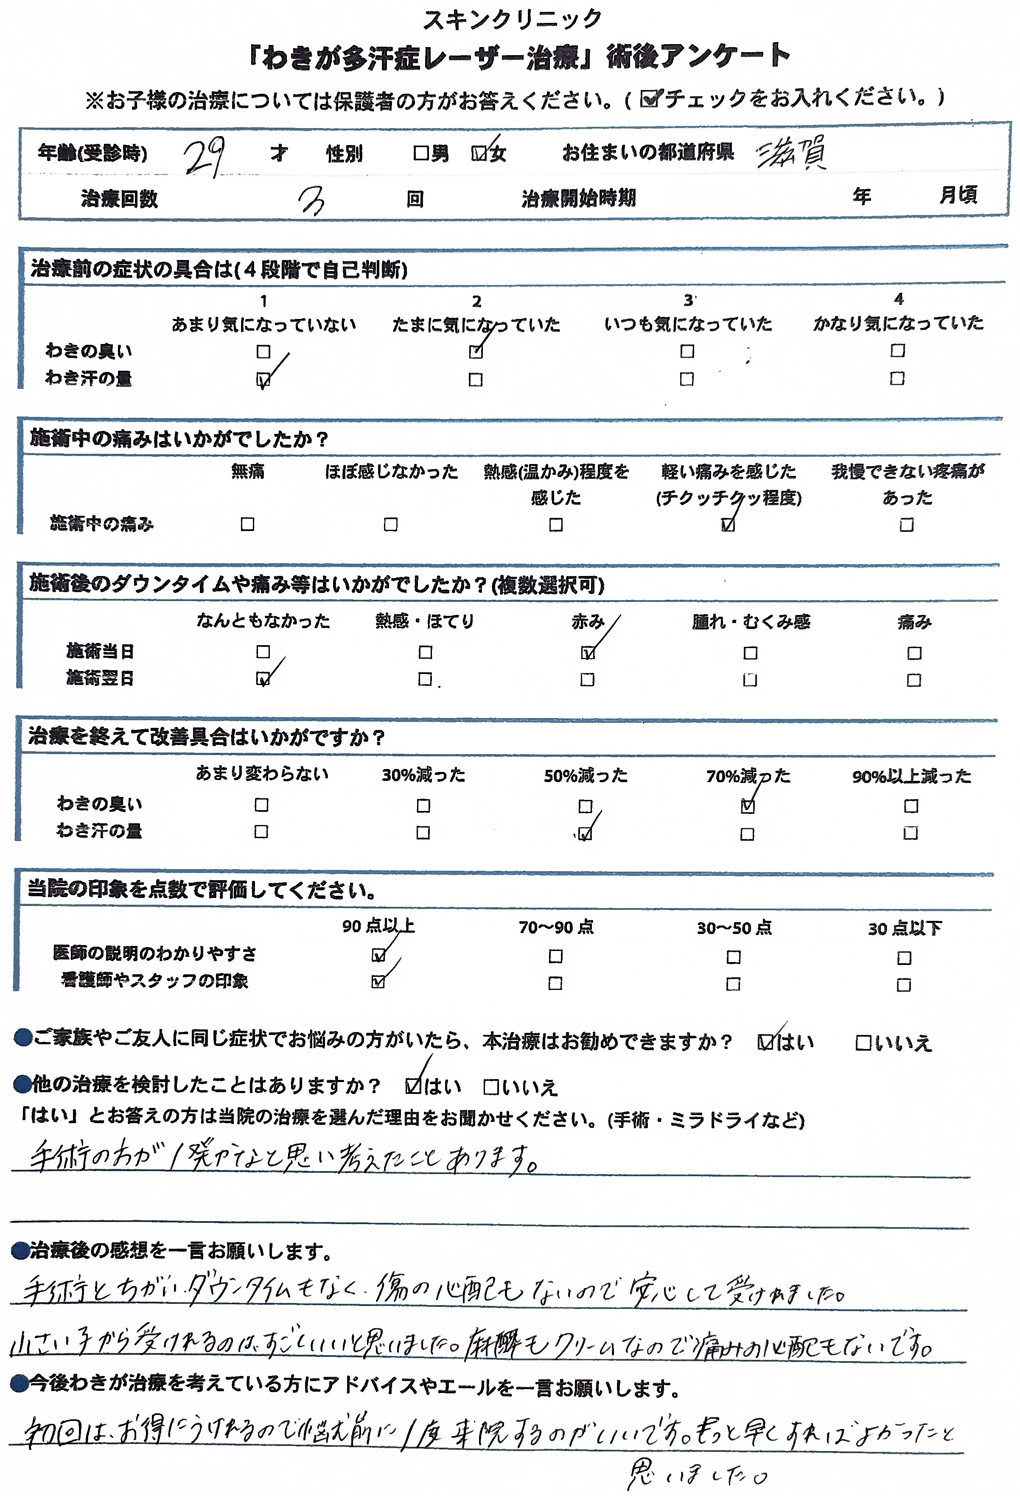 スキンクリニック
「わきが多汗症レーザー治療」術後アンケート
※お子様の治療については保護者の方がお答えください。(☑チェックをお入れください。)
年齢(受診時) 29 才 性別 □男 ☑女 お住まいの都道府県 滋賀
治療回数 3 回 治療開始時期 年 月頃
治療前の症状の具合は(4段階で自己判断)
1 2 3 4
あまり気になっていない たまに気になっていた いつも気になっていた かなり気になっていた
わきの臭い □ ☑ □ □
わき汗の量 ☑ □ □ □
施術中の痛みはいかがでしたか？
無痛 ほぼ感じなかった 熱感(温かみ)程度を 軽い痛みを感じた 我慢できない疼痛が
感じた (チクッチクッ程度) あった
施術中の痛み □ □ □ ☑ □
施術後のダウンタイムや痛み等はいかがでしたか？(複数選択可)
なんともなかった 熱感・ほてり 赤み 腫れ・むくみ感 痛み
施術当日 □ □ ☑ □ □
施術翌日 ☑ □ □ □ □
治療を終えて改善具合はいかがですか？
あまり変わらない 30%減った 50%減った 70%減った 90%以上減った
わきの臭い □ □ □ ☑ □
わき汗の量 □ □ ☑ □ □
当院の印象を点数で評価してください。
90点以上 70～90点 30～50点 30点以下
医師の説明のわかりやすさ ☑ □ □ □
看護師やスタッフの印象 ☑ □ □ □
●ご家族やご友人に同じ症状でお悩みの方がいたら、本治療はお勧めできますか？ ☑はい □いいえ
●他の治療を検討したことはありますか？ ☑はい □いいえ
「はい」とお答えの方は当院の治療を選んだ理由をお聞かせください。(手術・ミラドライなど)
手術の方が1発かなと思い考えたことあります。
●治療後の感想を一言お願いします。
手術とちがい、ダウンタイムもなく、傷の心配もないので安心して受けれました。
小さい子から受けれるのは、すごくいいと思いました。麻酔もクリームなので痛みの心配もないです。
●今後わきが治療を考えている方にアドバイスやエールを一言お願いします。
初回は、お得にうけれるので悩む前に1度来院するのがいいです。もっと早くすればよかったと
思いました。